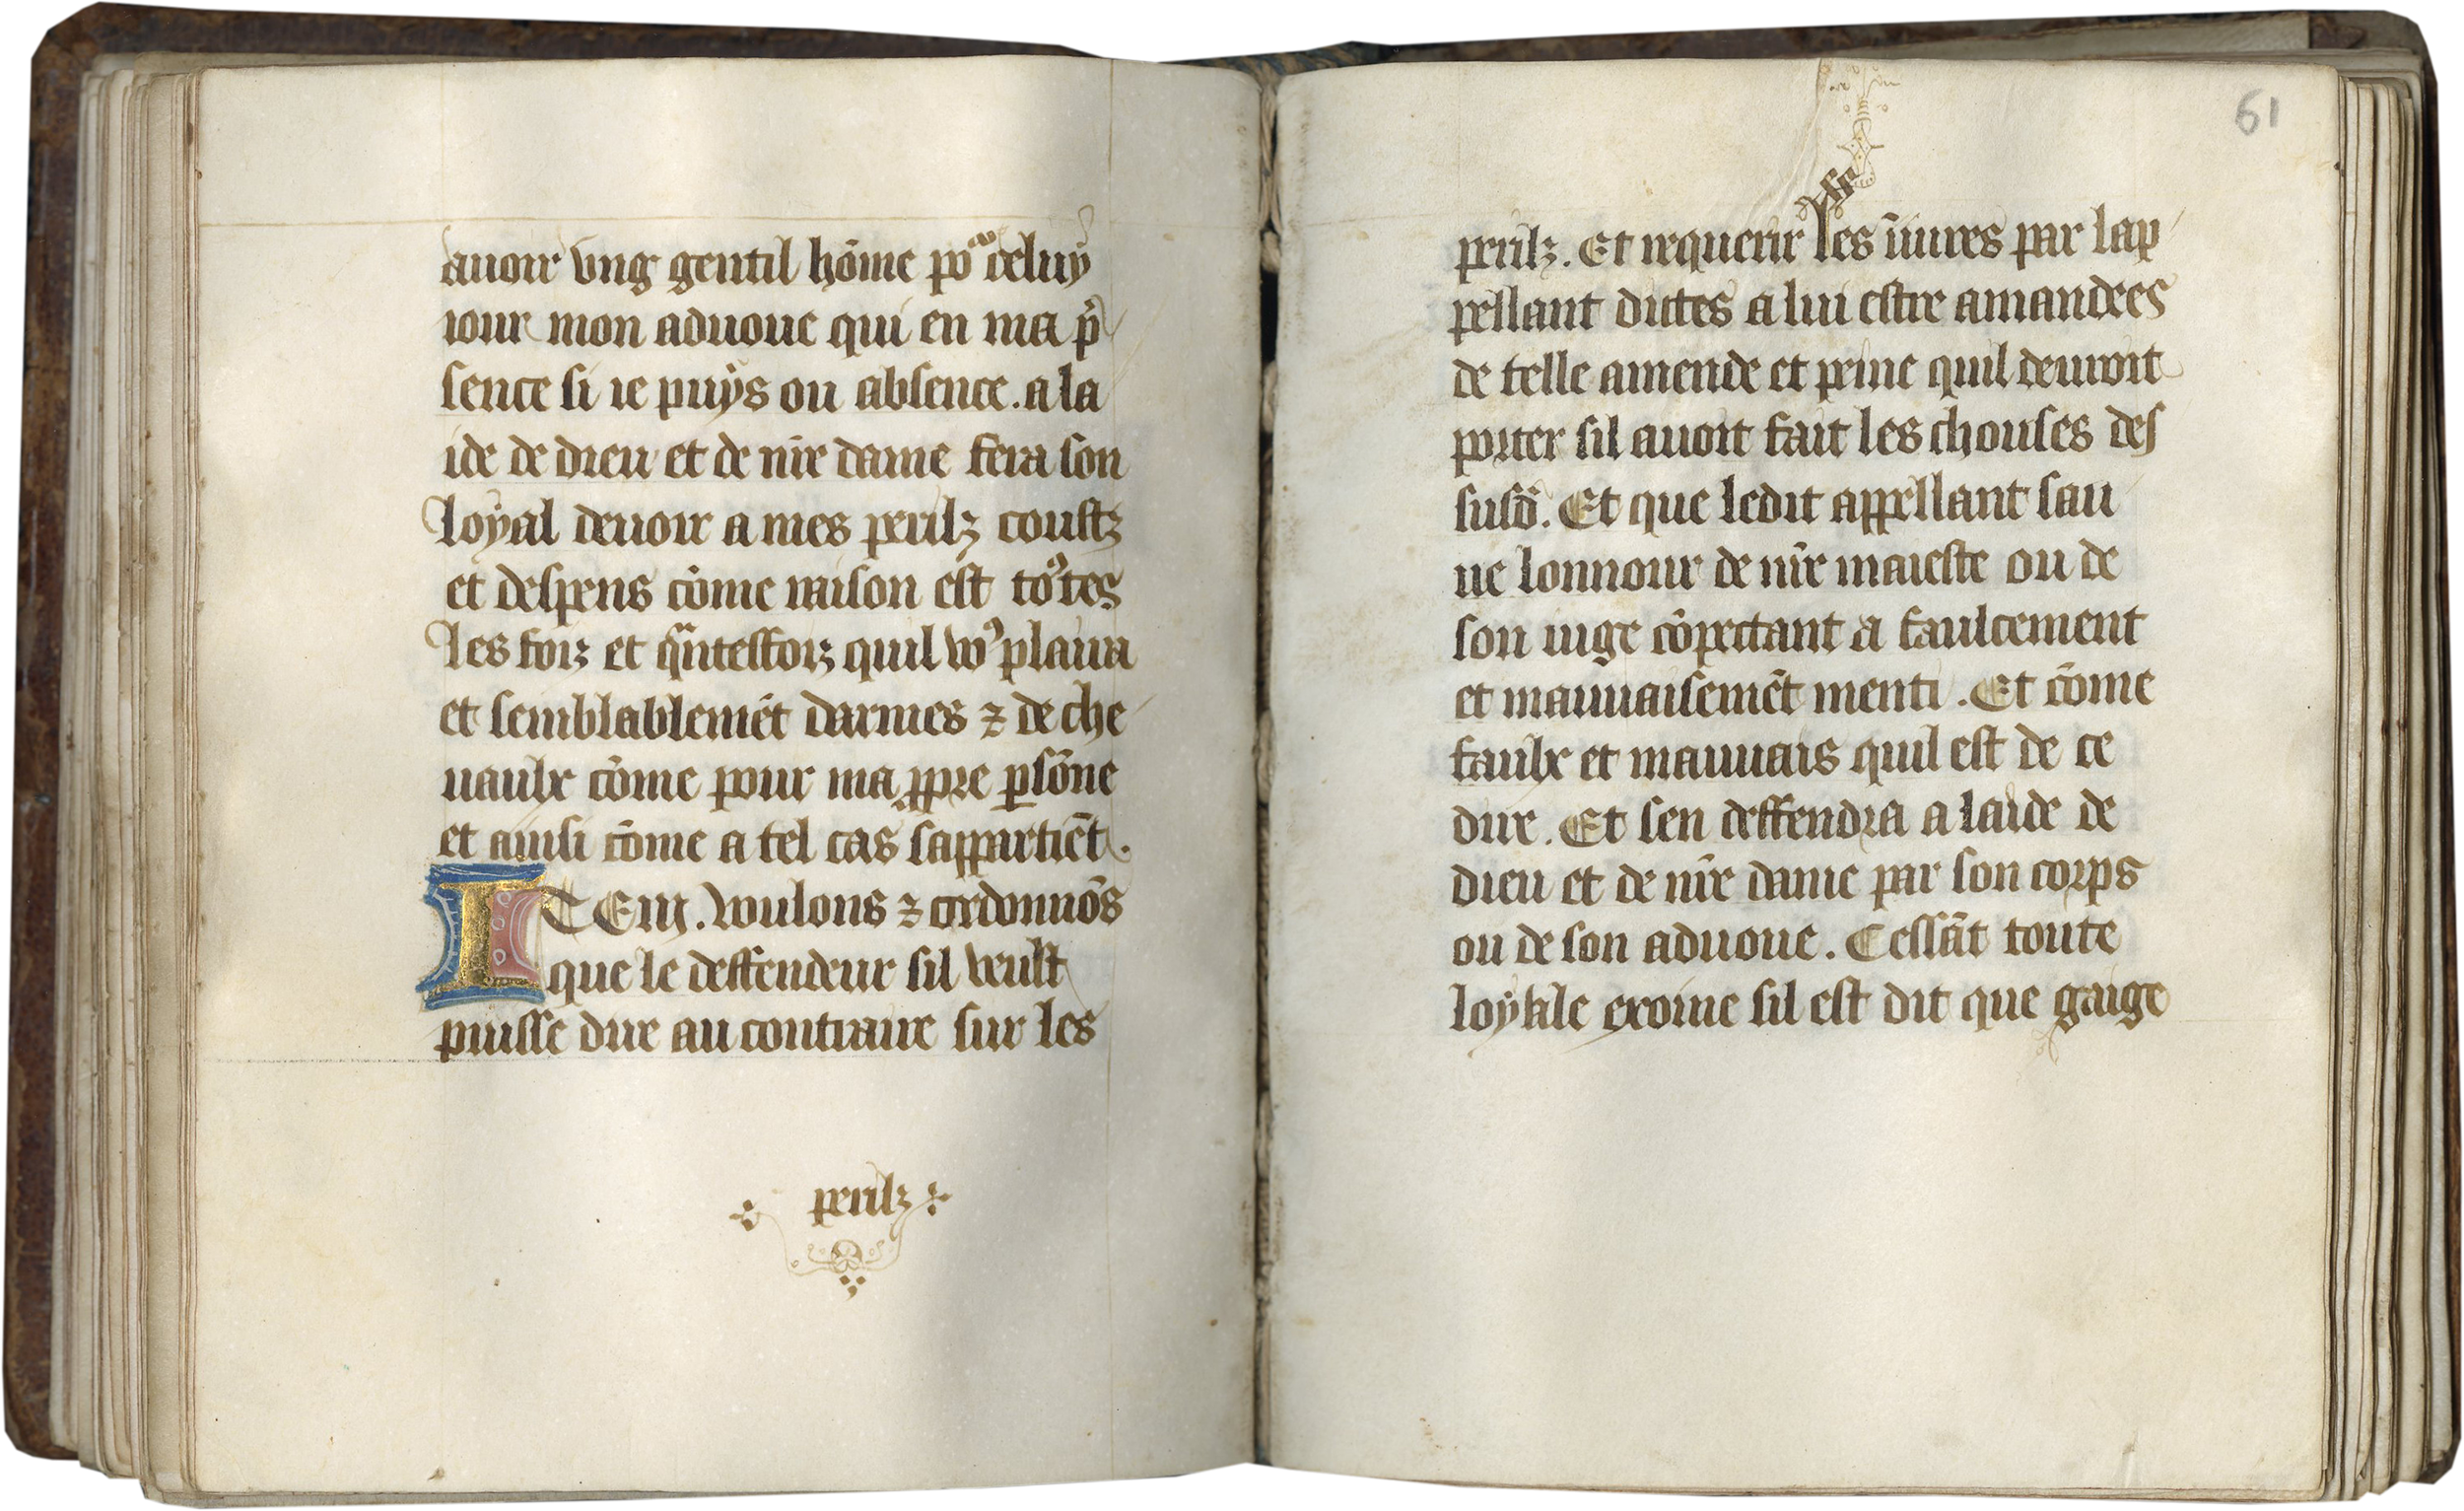 auoir vng gentil hōme poʳ celuy
iour mon aduoue qui en ma p̄
sence si ie puys ou absence. a la
ide de dieu et de nr̄e dame fera son
loyal deuoir a mes perilz coustz
et despens cōme raison est toᵘtes
les foiz et qᵃntesfoiz quil voꝰ plaira
et semblablemēt darmes ⁊ de che
uaulx cōme pour ma ꝓpre ꝑsōne
et ainsi cōme a tel cas sappartiēt.
ITEM. voulons ⁊ ordonnōs
que le deffendeur sil veult
puisse dire au contraire sur les
perilz
61
perilz. Et requerir les iniures par lap
pellant dictes a lui estre amandees
de telle amende et peine quil deuroit
porter sil auoit fait les chouses des
susd̄. Et que ledit appellant sau
ue lonnour de nr̄e maieste ou de
son iuge cōpectant a faulcement
et mauuaisemēt menti. Et cōme
faulx et mauuais quil est de ce
dire. Et sen deffendra a laide de
dieu et de nr̄e dame par son corps
ou de son aduoue. Cessāt toute
loyale exoine sil est dit que gaige